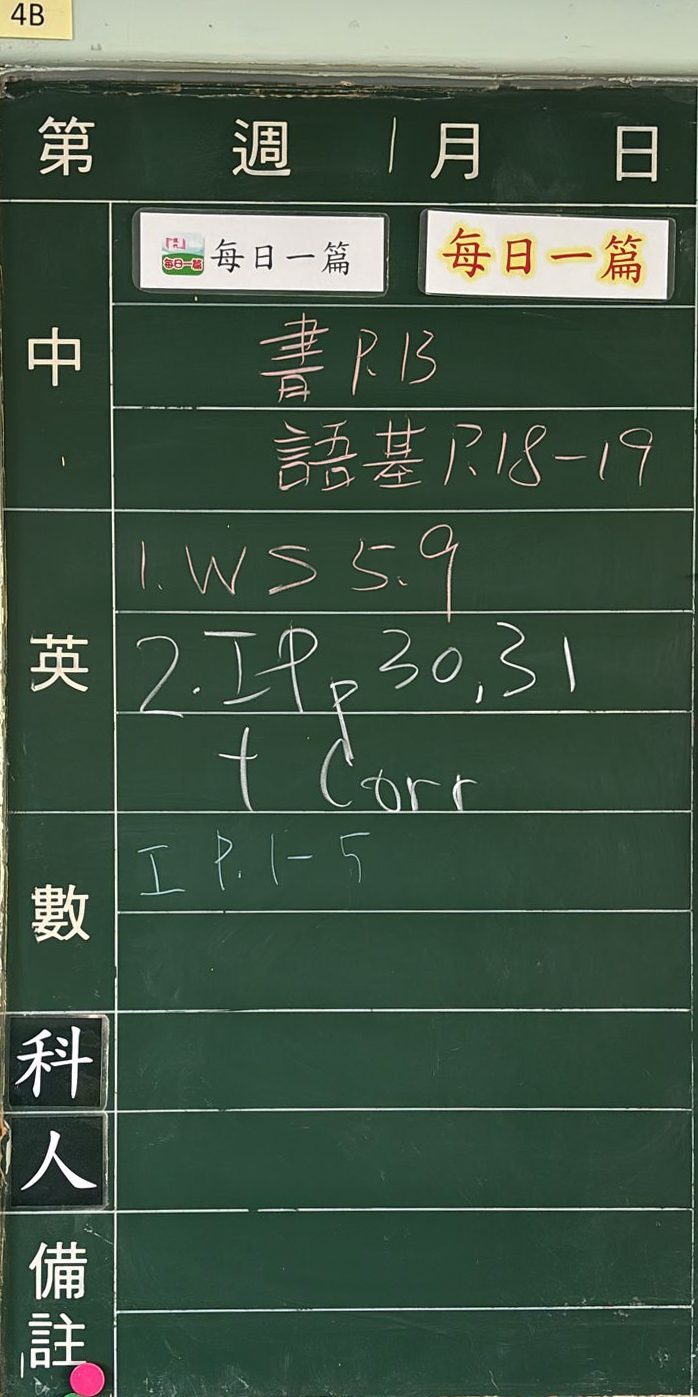 4B
第 週 1月 日
中
每日一篇 每日一篇
書 P.13
語基 P.18-19
英
1. WS 5.9
2. IP p 30,31
+ Corr
數
I P.1-5
科
人
備註